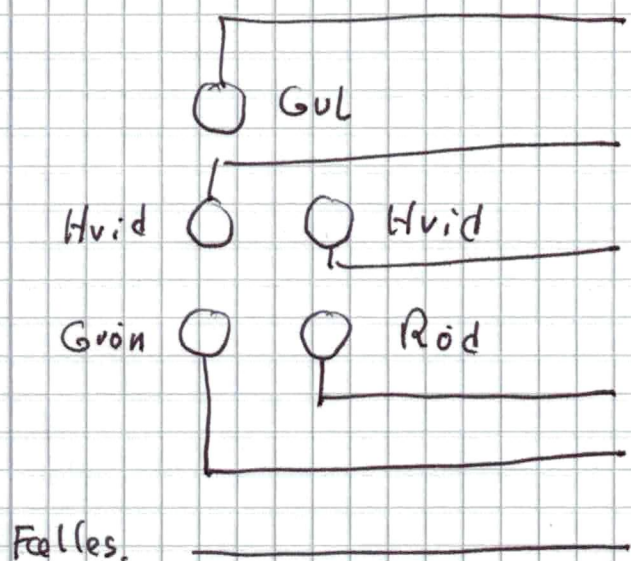 Gul
Hvid Hvid
Grön Röd
Fælles.